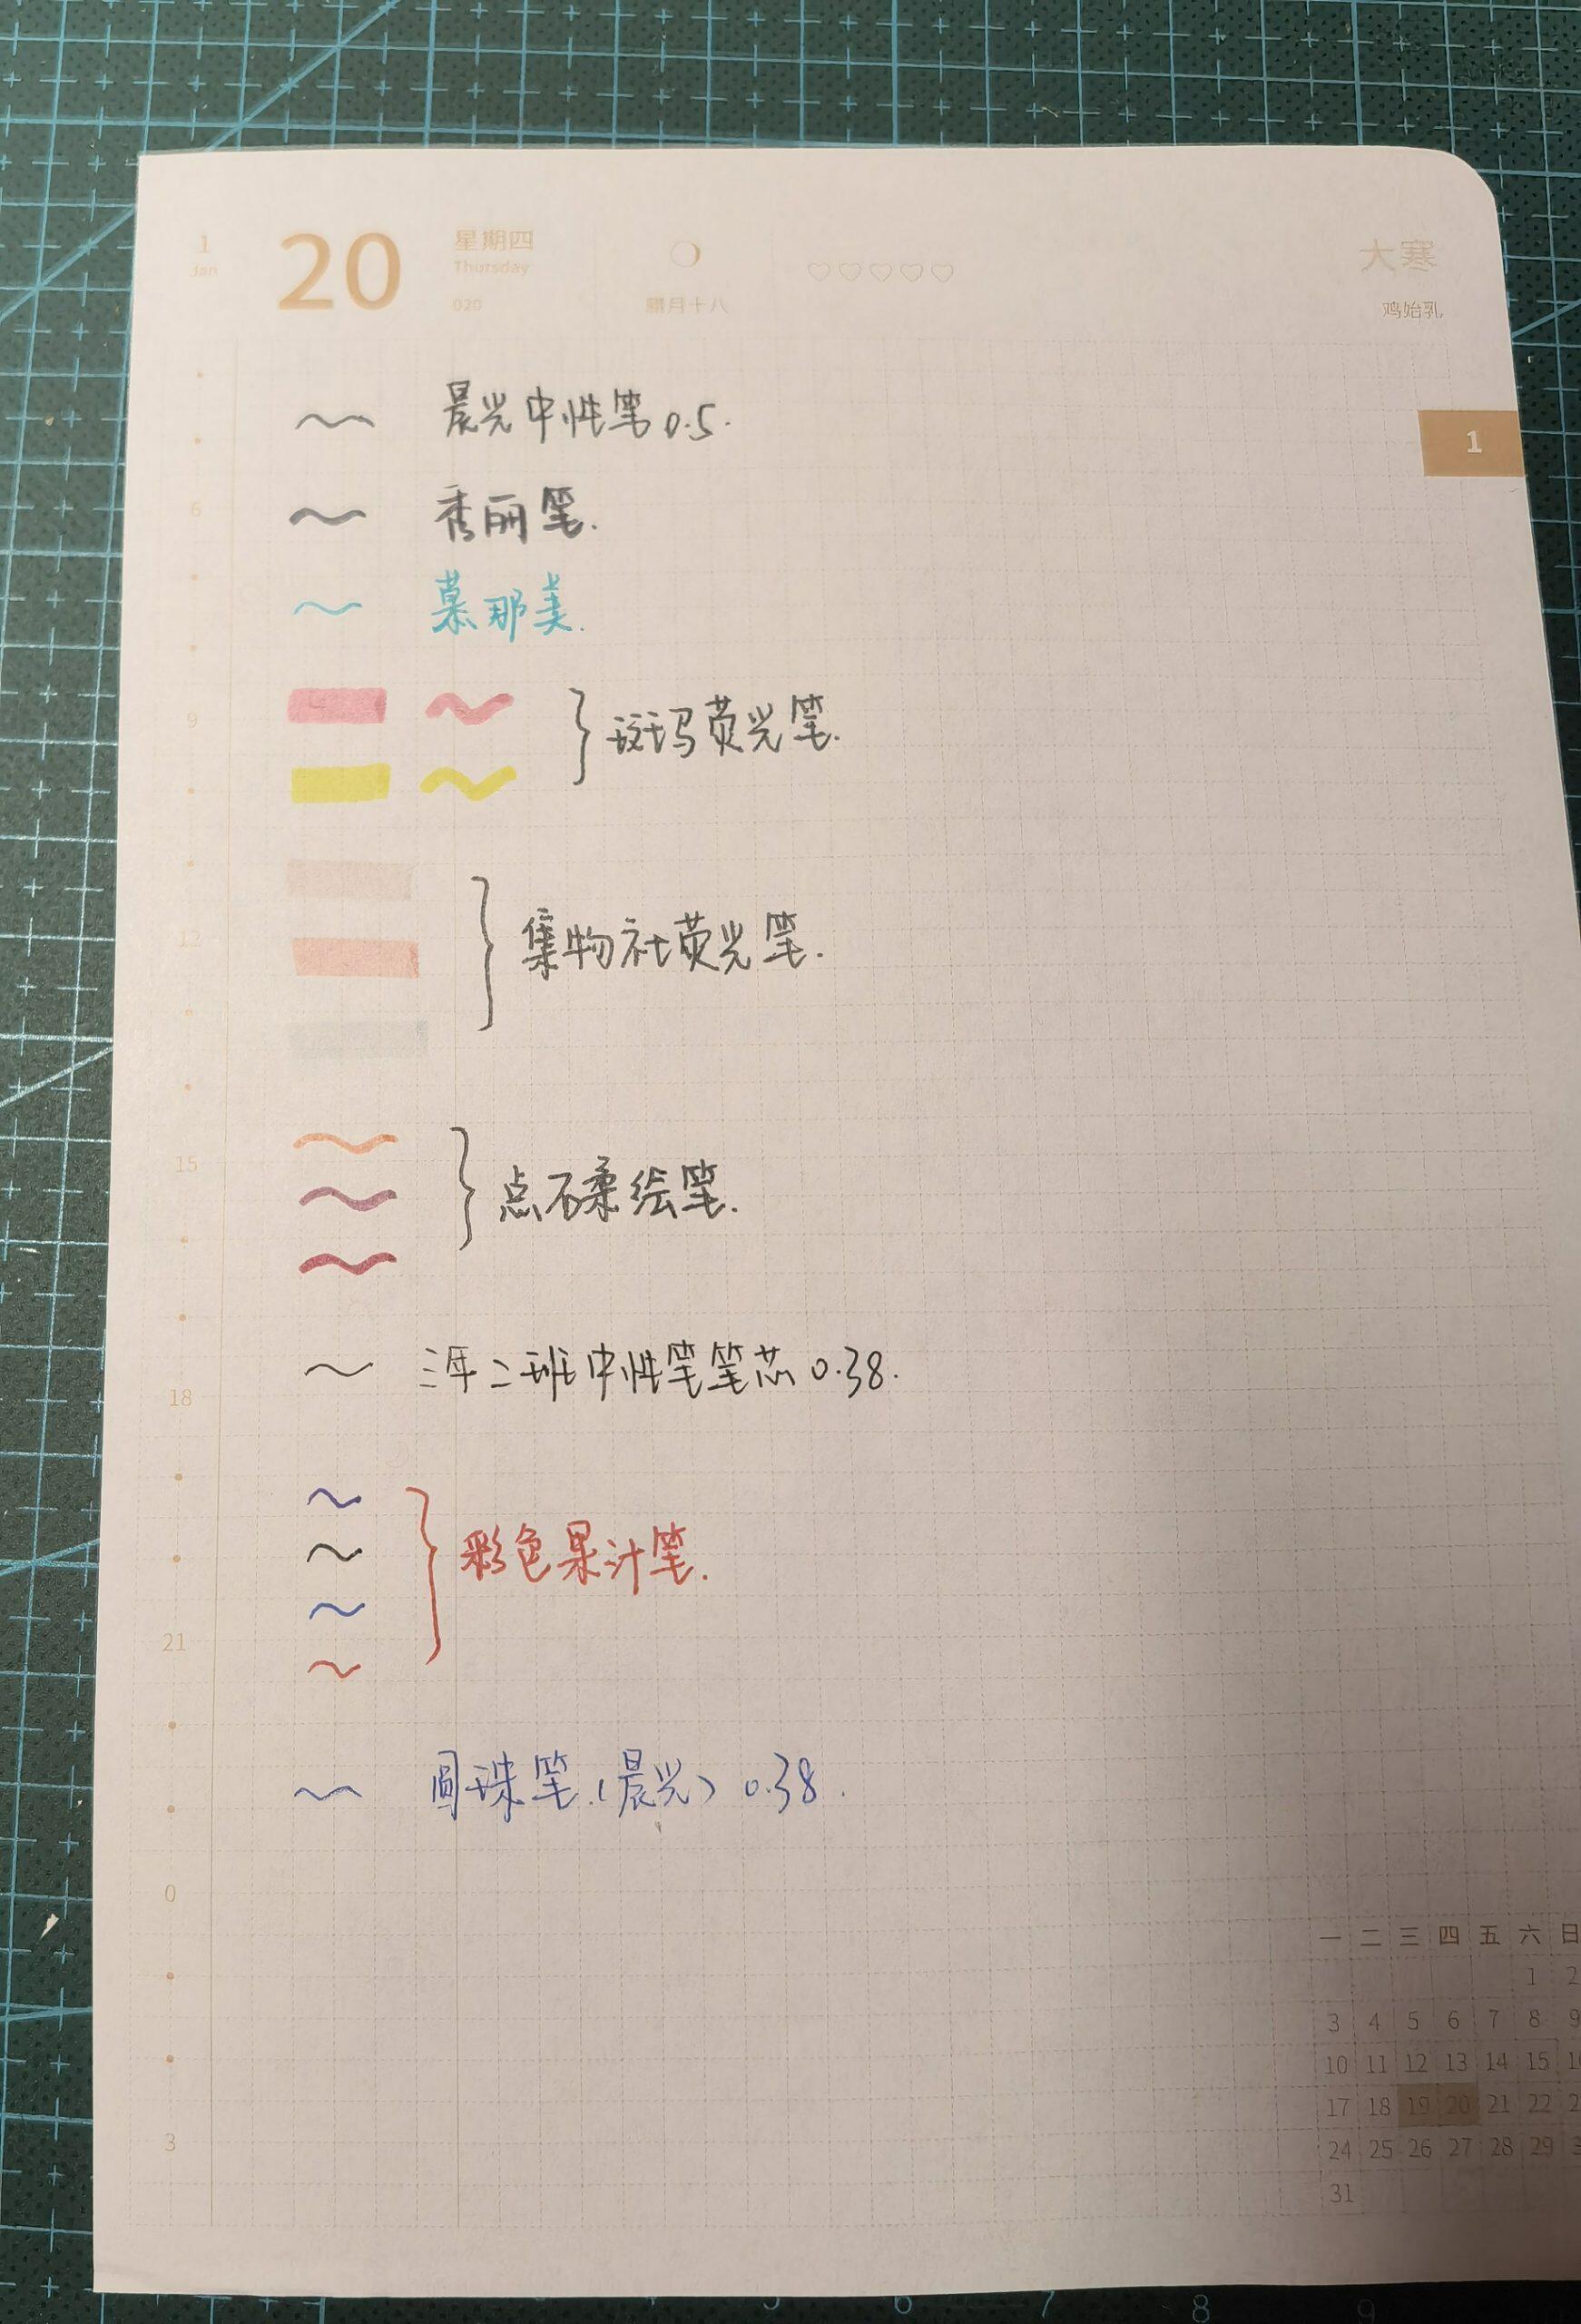 1
Jan
20
星期四
Thursday
020
腊月十八
大寒
鸡始乳
1
晨光中性笔0.5.
秀丽笔.
慕那美.
斑玛荧光笔.
集物社荧光笔.
点石柔绘笔.
三年二班中性笔笔芯0.38.
彩色果汁笔.
圆珠笔.(晨光) 0.38.
6
9
12
15
18
21
0
3
一 二 三 四 五 六 日
1 2
3 4 5 6 7 8 9
10 11 12 13 14 15
17 18 19 20 21 22
24 25 26 27 28 29
31
5 6 7 8 9